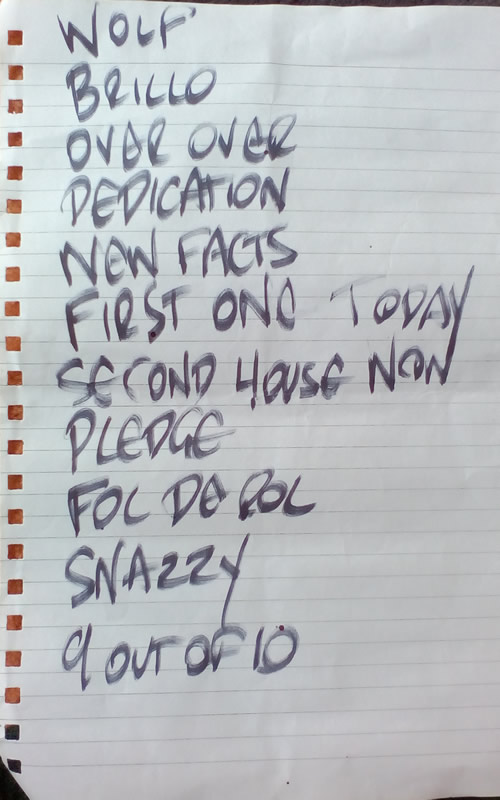 WOLF
BRILLO
OVER OVER
DEDICATION
NEW FACTS
FIRST ONE TODAY
SECOND HOUSE NOW
PLEDGE
FOL DE ROL
SNAZZY
9 OUT OF 10